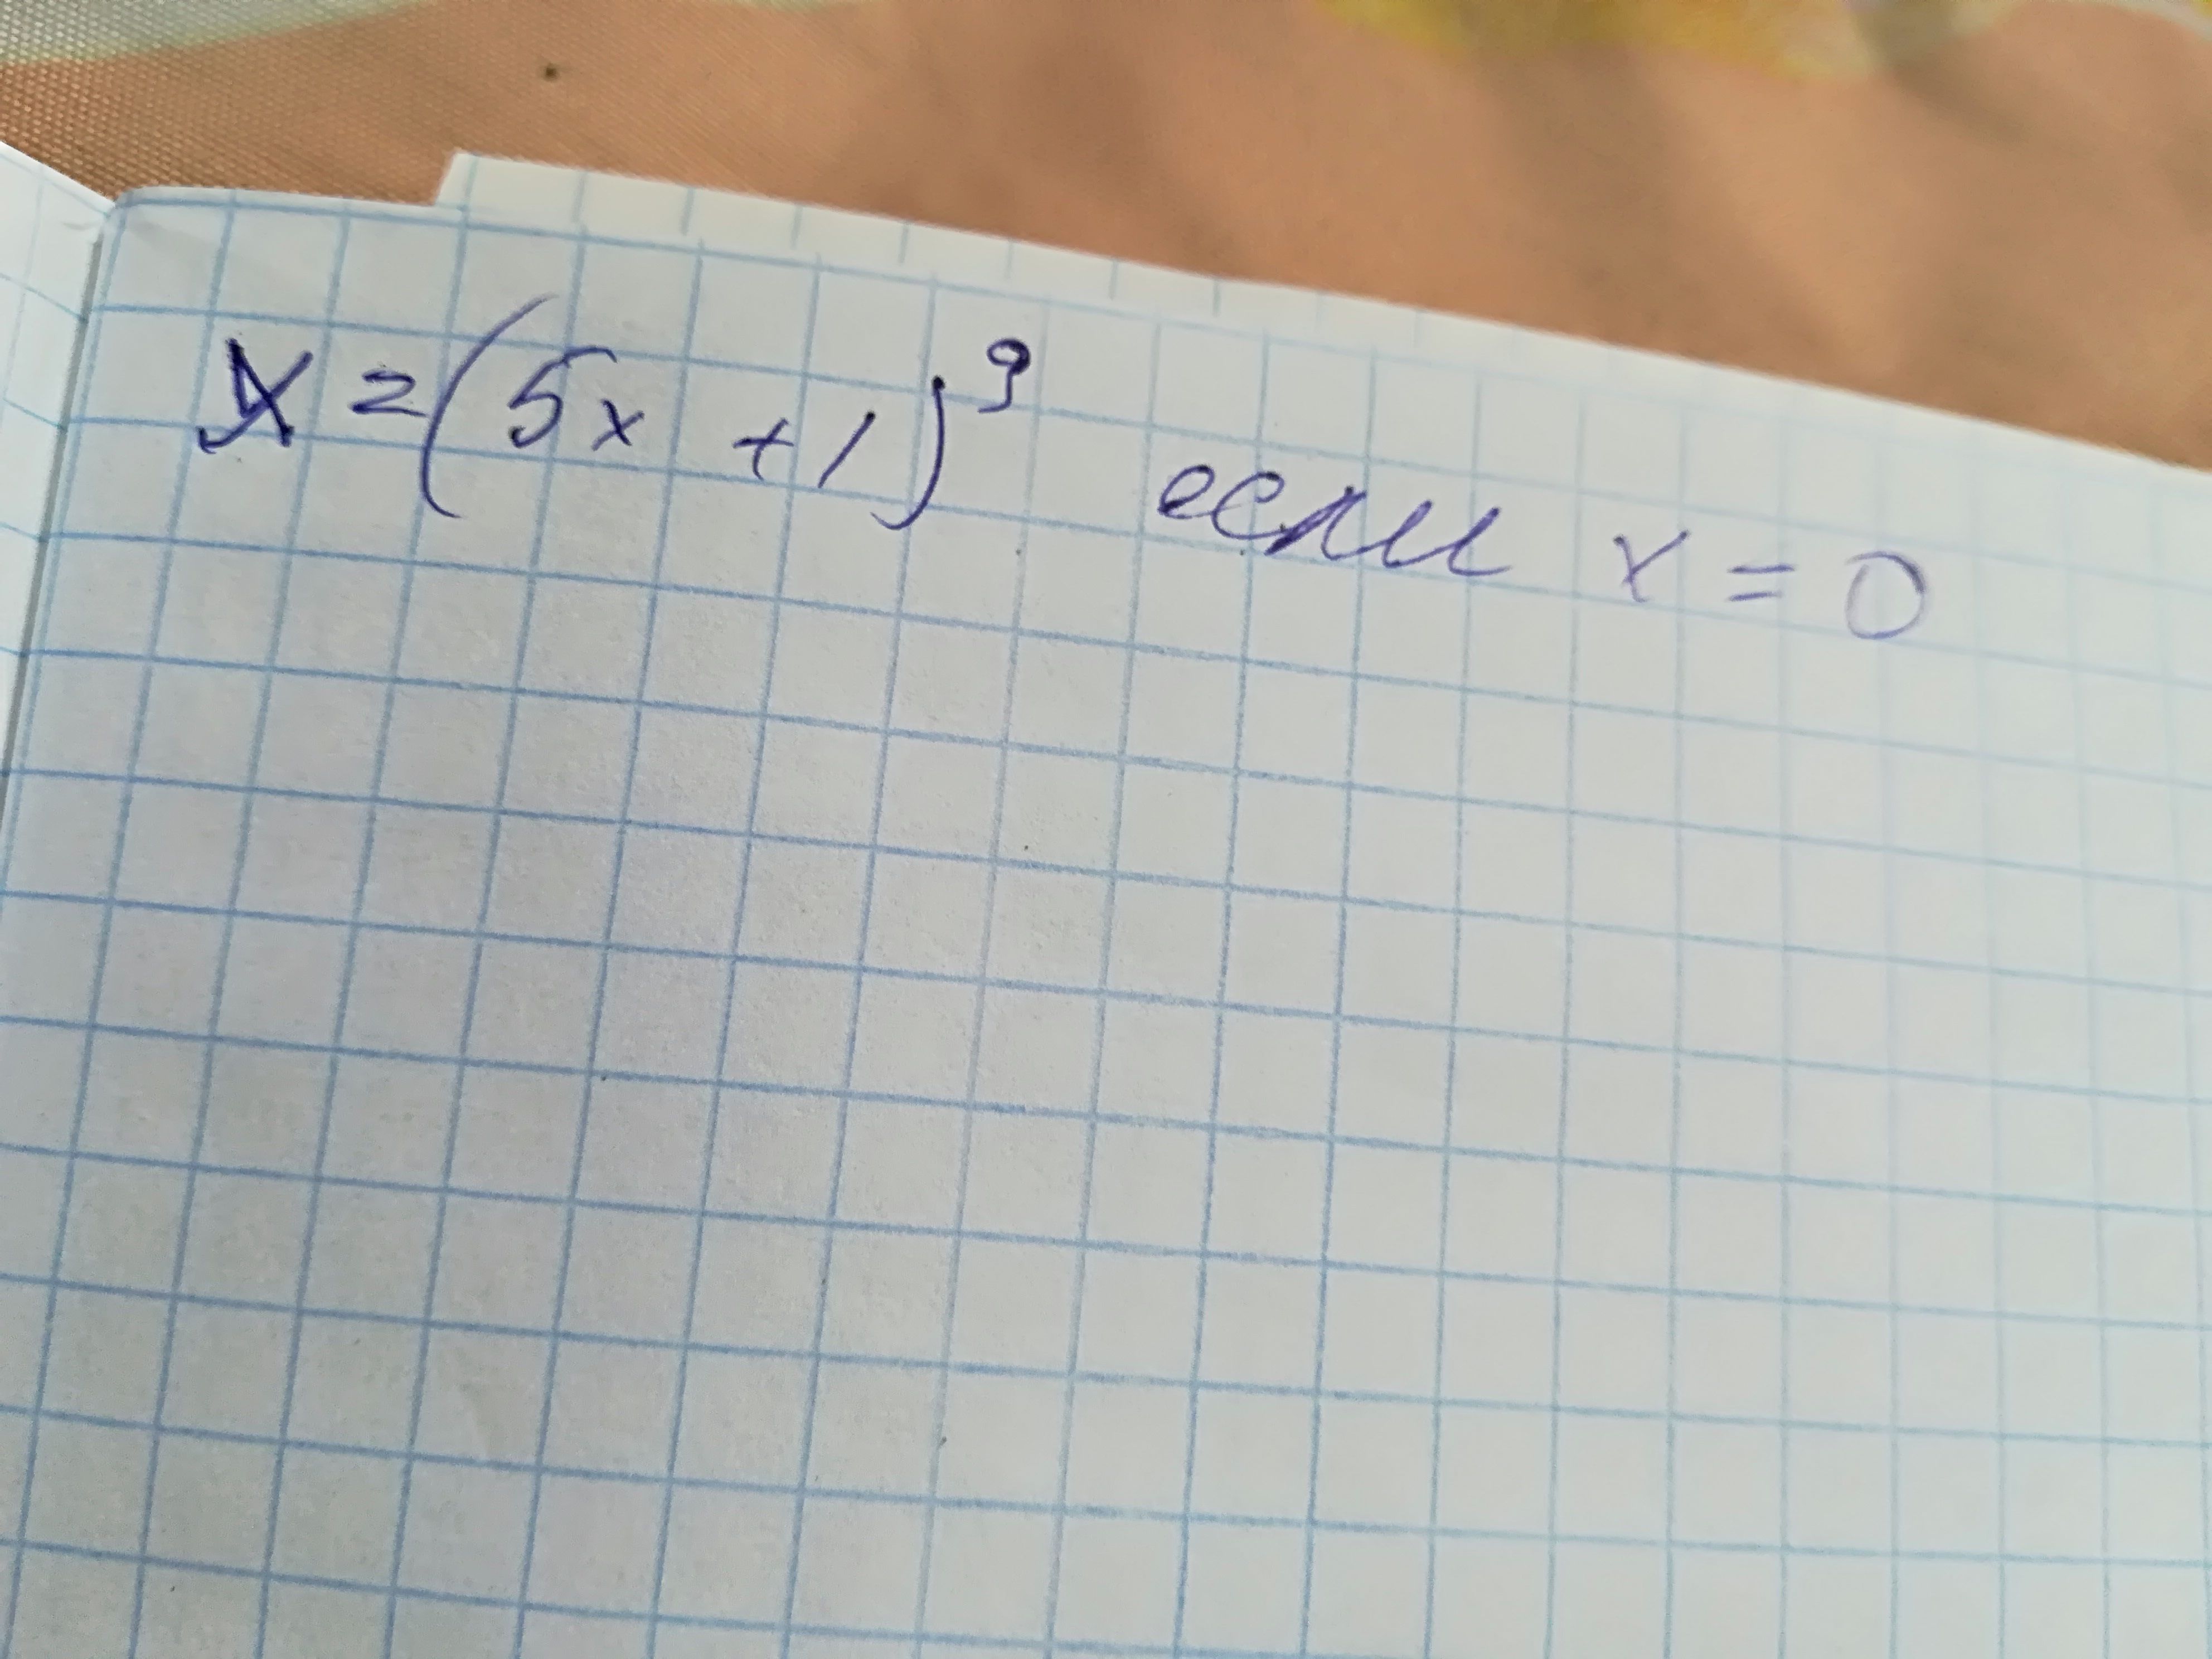 x = (5x + 1)⁹ если x = 0